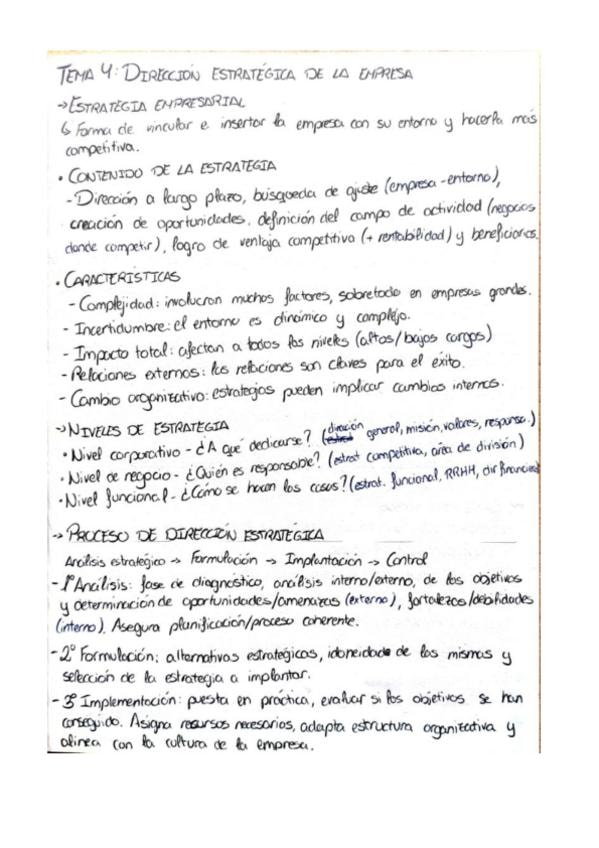 TEMA 4: DIRECCIÓN ESTRATÉGICA DE LA EMPRESA
→ ESTRATEGIA EMPRESARIAL
↳ Forma de vincular e insertar la empresa con su entorno y hacerla más
competitiva.
• CONTENIDO DE LA ESTRATEGIA
- Dirección a largo plazo, búsqueda de ajuste (empresa-entorno),
creación de oportunidades, definición del campo de actividad (negocios
donde competir), logro de ventaja competitiva (+ rentabilidad) y beneficiarios.
• CARACTERÍSTICAS
- Complejidad: involucran muchos factores, sobretodo en empresas grandes.
- Incertidumbre: el entorno es dinámico y complejo.
- Impacto total: afectan a todos los niveles (altos/bajos cargos)
- Relaciones externas: las relaciones son claves para el éxito.
- Cambio organizativo: estrategias pueden implicar cambios internos.
→ NIVELES DE ESTRATEGIA
• Nivel corporativo - ¿A qué dedicarse? (dirección general, misión, valores, responsa.)
• Nivel de negocio - ¿Quién es responsable? (estrat competitiva, área de división)
• Nivel funcional - ¿Cómo se hacen las cosas? (estrat. funcional, RRHH, dir financiera)
→ PROCESO DE DIRECCIÓN ESTRATÉGICA
Análisis estratégico → Formulación → Implantación → Control
- 1º Análisis: fase de diagnóstico, análisis interno/externo, de los objetivos
y determinación de oportunidades/amenazas (externo), fortalezas/debilidades
(interno). Asegura planificación/proceso coherente.
- 2º Formulación: alternativas estratégicas, idoneidad de las mismas y
selección de la estrategia a implantar.
- 3º Implementación: puesta en práctica, evaluar si los objetivos se han
conseguido. Asigna recursos necesarios, adapta estructura organizativa y
alinea con la cultura de la empresa.